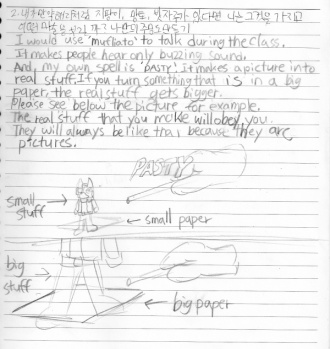 I would use 'muffliato' to talk during the class.
It makes people hear only buzzing sound.
And, my own spell is 'PASTY'. It makes a picture into
real stuff. If you turn something that is in a big
paper, the real stuff gets bigger.
Please see below the picture for example.
The real stuff that you make will obey you.
They will always be like that because they are
pictures.
PASTY
small stuff
small paper
big stuff
big paper